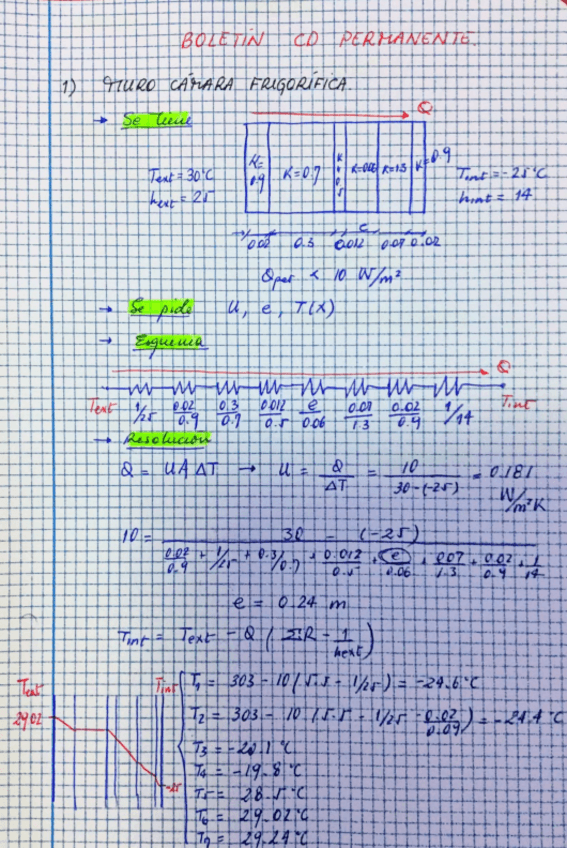 BOLETÍN CD PERMANENTE.
1) MURO CÁMARA FRIGORÍFICA.
→ Se tiene
Q
Text = 30°C
hext = 25
K= 0.9
K=0.7
K 0.5
K=0.06
K=1.3
K=0.9
Tint = -25°C
hint = 14
0.02 0.3 0.012 e 0.07 0.02
Qper < 10 W/m²
→ Se pide U, e, T(x)
→ Esquema
Q
Text 1/25 0.02/0.9 0.3/0.7 0.012/0.5 e/0.06 0.07/1.3 0.02/0.9 1/14 Tint
→ Resolución
Q = UAΔT → U = Q/ΔT = 10/30-(-25) = 0.181 W/m²K
10 = 30 - (-25) / 0.02/0.9 + 1/25 + 0.3/0.7 + 0.012/0.5 + e/0.06 + 0.07/1.3 + 0.02/0.9 + 1/14
e = 0.24 m
Tint = Text - Q ( ΣR - 1/hext )
Text
Tint
29.02
-25
T1 = 303 - 10 (5.5 - 1/25) = -24.6°C
T2 = 303 - 10 (5.5 - 1/25 - 0.02/0.09) = -24.4°C
T3 = -20.1°C
T4 = -19.8°C
T5 = 28.5°C
T6 = 29.02°C
T7 = 29.24°C